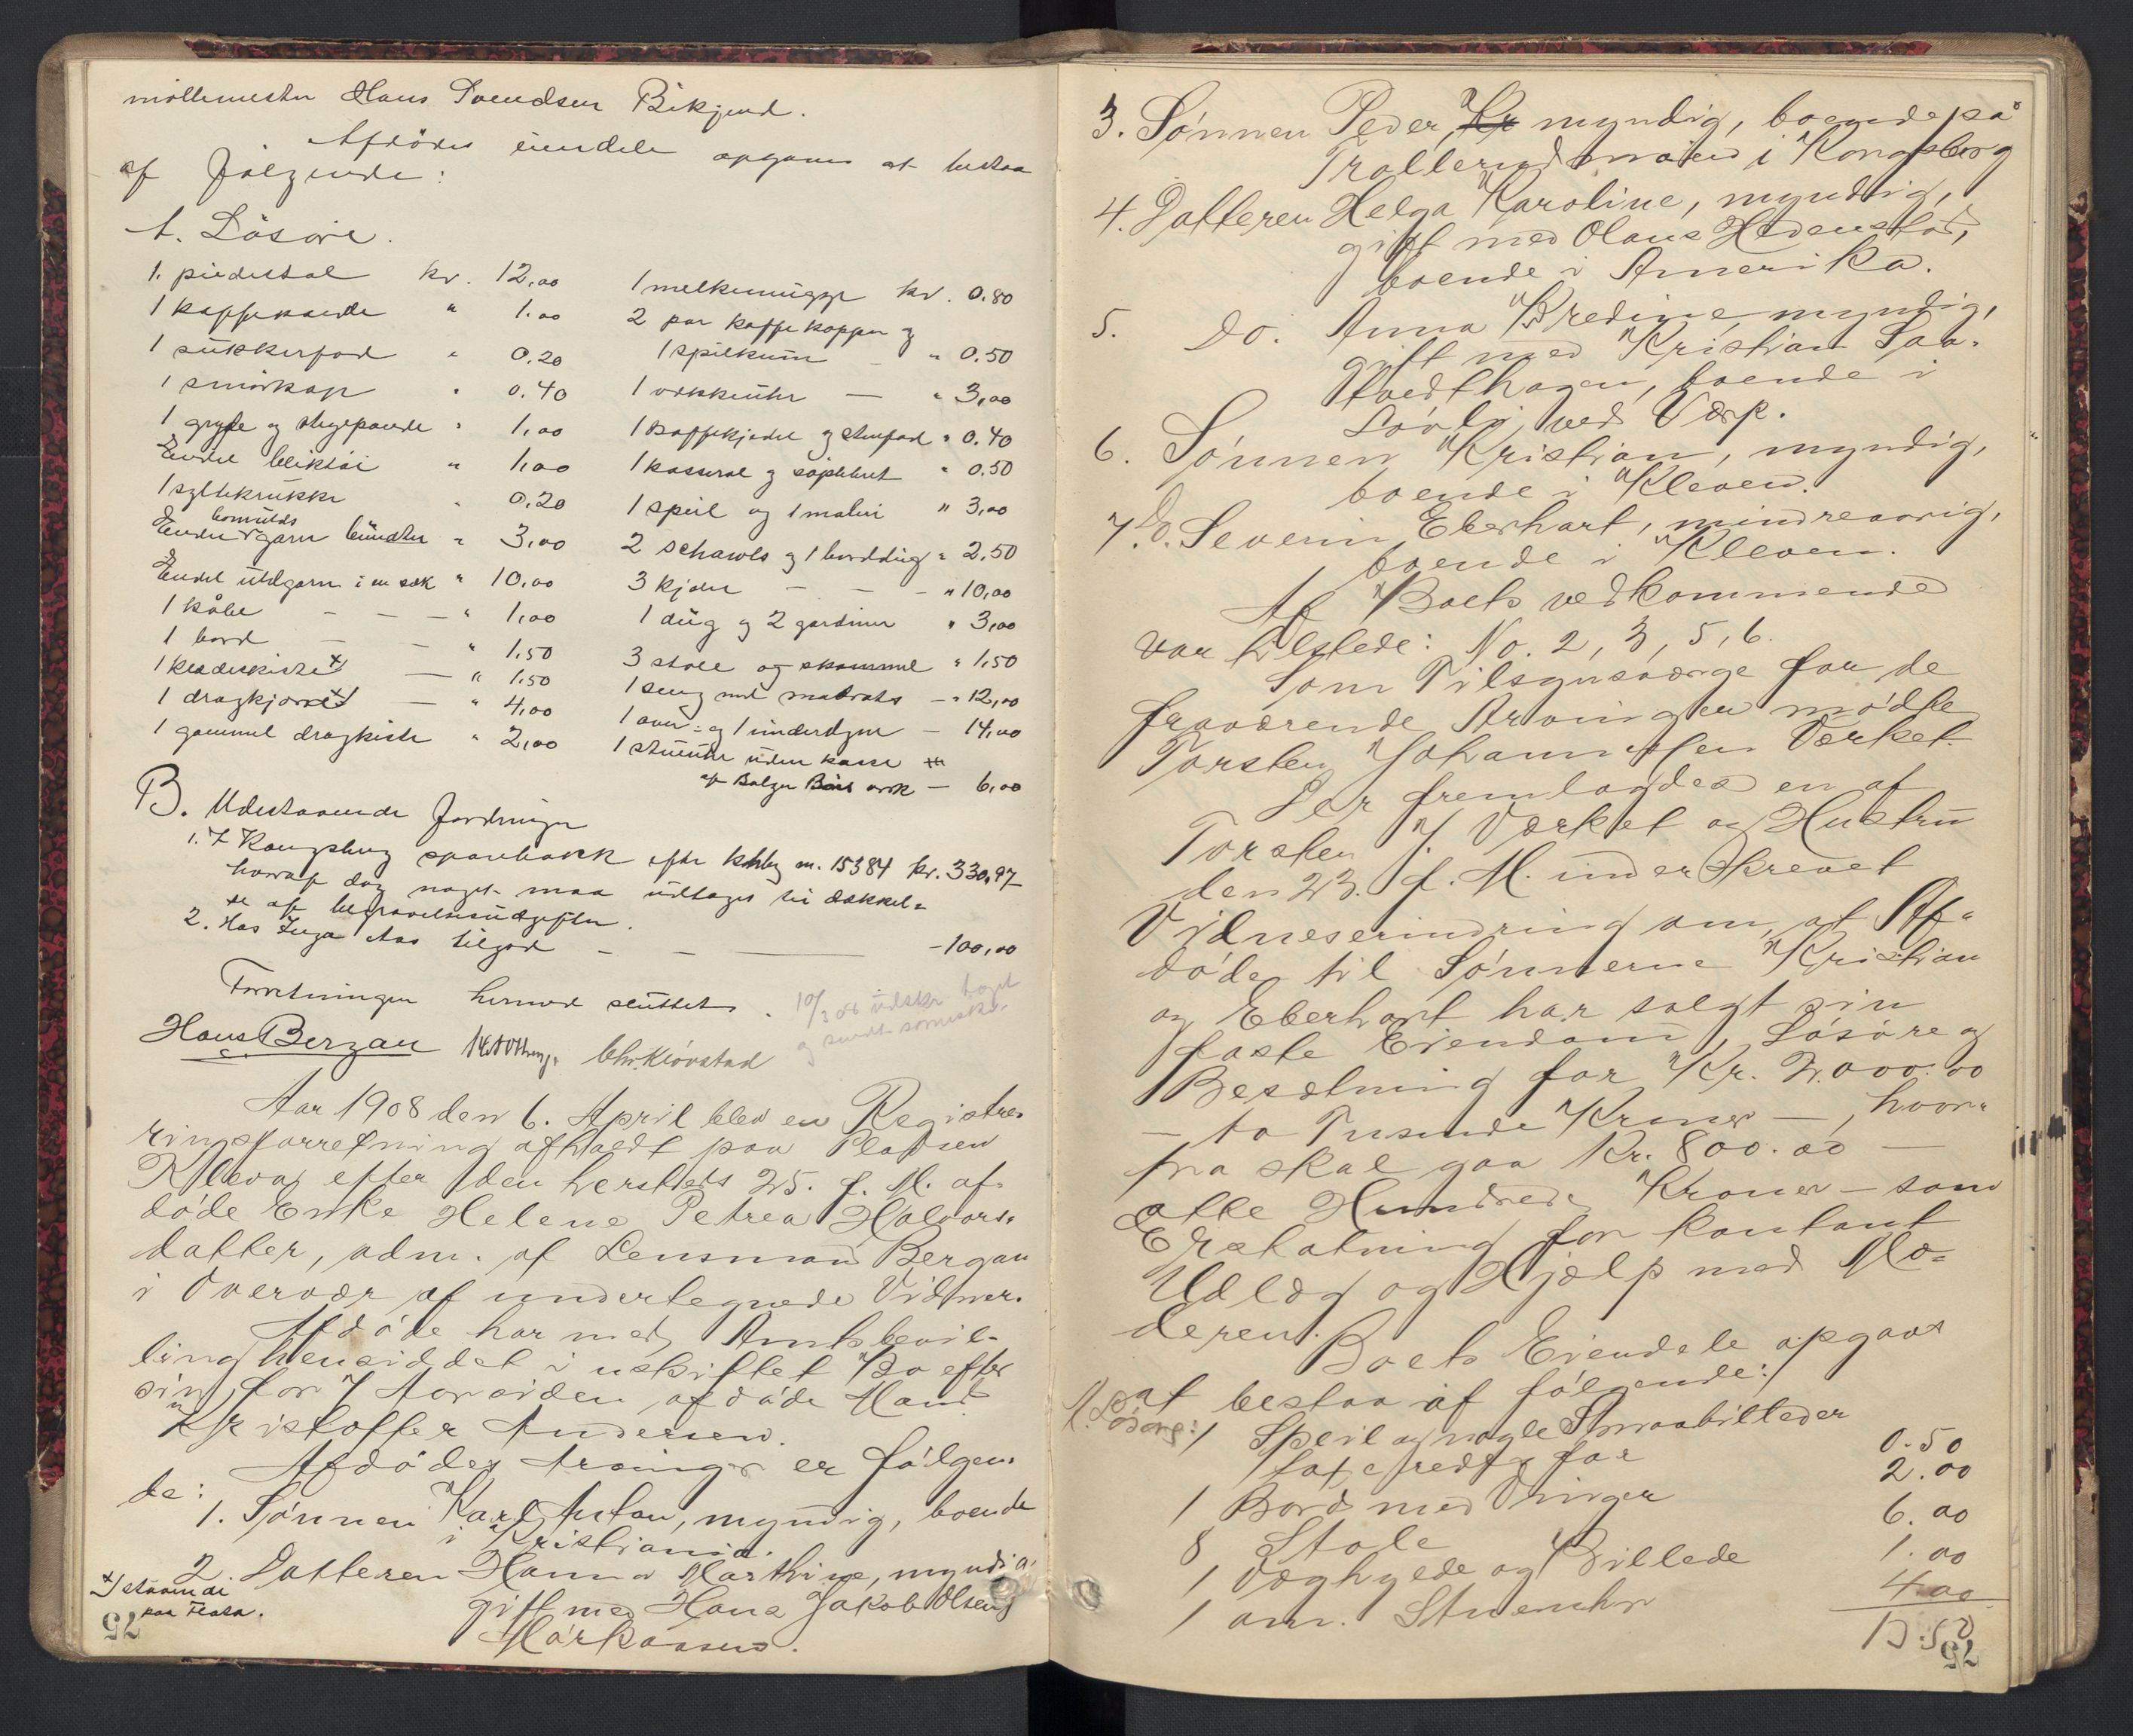 møllemester Hans Svendsen Bikjend.
Afdødes eiendele opgaves at bestaa
af følgende:
A. Løsøre.
1. piedestal kr. 12,00
1 kaffekande " 1.00
1 sukkerfad " 0.20
1 smørkop " 0.40
1 gryte og stegepande " 1,00
Endel bliktøi " 1,00
1 syltekrukke " 0.20
bomulds
Endel garn bundter " 3,00
Endel uldgarn i en sæk " 10,00
1 kåbe — — — " 1,00
1 bord — — " 1.50
1 klædeskiste x) — " 1.50
1 dragkjærre x) — " 4,00
1 gammel dragkiste " 2,00
1 melkemugge kr. 0.80
2 par kaffekopper og
1 spilkum — " 0.50
1 vækkeuhr — " 3,00
1 kaffekjedel og stenfad " 0.40
1 kasserol og sopekost " 0.50
1 speil og 1 maleri " 3,00
2 schawls og 1 borddug " 2,50
3 kjoler — — — " 10,00
1 dug og 2 gardiner " 3,00
3 stole og skammel " 1,50
1 seng med madrats — " 12,00
1 over- og 1 underdyne — 14,00
1 stueuhr uden kasse
af Bolzer Børs værk — 6,00
B. Udestaaende fordringer
1. I Kongsberg sparebank efter kthbg no. 15384 kr. 330,97
hvoraf dog noget maa udtages til dækkel=
se af begravelsesudgifter.
2. Hos Inga Aas tilgode — — — 100,00
Forretningen hermed sluttet.
10/3 08 udskr. taget
og sendt sorenskr.
Hans Bergan Chr. Kløvstad
Aar 1908 den 6. April blev en Registre-
ringsforretning afholdt paa Pladsen
Kleva efter den hersteds 25. f. M. af-
døde Enke Helene Petrea Halvors-
datter, adm. af Lensmand Bergan
i Overvær af undertegnede Vidner.
Afdøde har med Amtsbevil-
ling hensiddet i uskiftet Bo efter
sin for 7 Aar siden afdøde Mand
Kristoffer Andersen.
Afdødes Arvinger er følgen-
de:
1. Sønnen Karl Anton, myndig, boende
i Kristiania.
2. Datteren Hanna Marthine, myndig,
gift med Hans Jakob Olsen,
Mørkaasen.
x) staaende
paa Flata.
75
3. Sønnen Peder, Kr myndig, boende på
Trollerudmoen i Kongsberg
4. Datteren Helga Karoline, myndig,
gift med Olaus Hedenstad,
boende i Amerika.
5. Do. Anna Kredine myndig,
gift med Kristian Saa-
tvedthagen, boende i
Løvli ved Værp.
6. Sønnen Kristian, myndig,
boende i Kleven.
7. Do. Severin Eberhart, mindreaarig,
boende i Kleven.
Af Boets vedkommende
var tilstede: No. 2, 3, 5, 6.
Som Tilsynsværge for de
fraværende Arvinger mødte
Torsten Johannessen Værket.
Der fremlagdes en af
Torsten J. Værket og Hustru
den 23. f. M. underskrevet
Vidneserindring om, at Af-
døde til Sønnerne Kristian
og Eberhart har solgt sin
faste Eiendom, Løsøre og
Besætning for Kr. 2.000.00
— to Tusinde Kroner —, hvor-
fra skal gaa Kr. 800.00 —
otte Hundrede Kroner — som
Erstatning for kontant
Udlæg og Hjælp med Mo=
deren.
Boets Eiendele opgaves
at bestaa af følgende:
A. Løsøre:
1 Speil og nogle Smaabilleder
taxeredt for 0.50
1 Bord med Vinger 2.00
8 Stole 6.00
1 Væghylde og Billede 1.00
1 am. Stueuhr 4.00
13.50
75